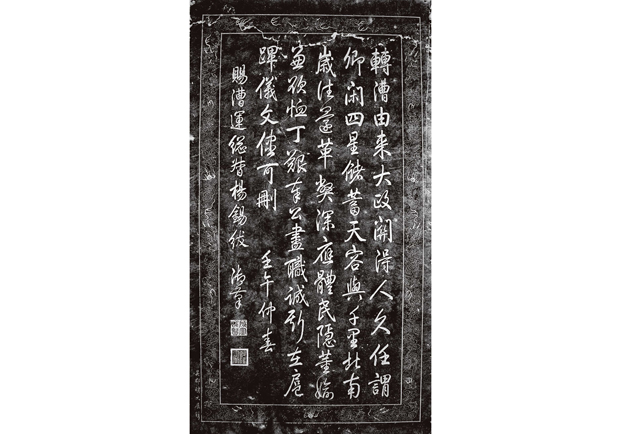 轉漕由来大政關得人久任謂
卿閑四星儲蓄天容與千里北南
歲往還革獘深應體民隱董
欲恤丁艱奉公盡職誠斯在扈
蹕儀文儘可刪 壬午仲春
賜漕運總督楊錫紱 御筆